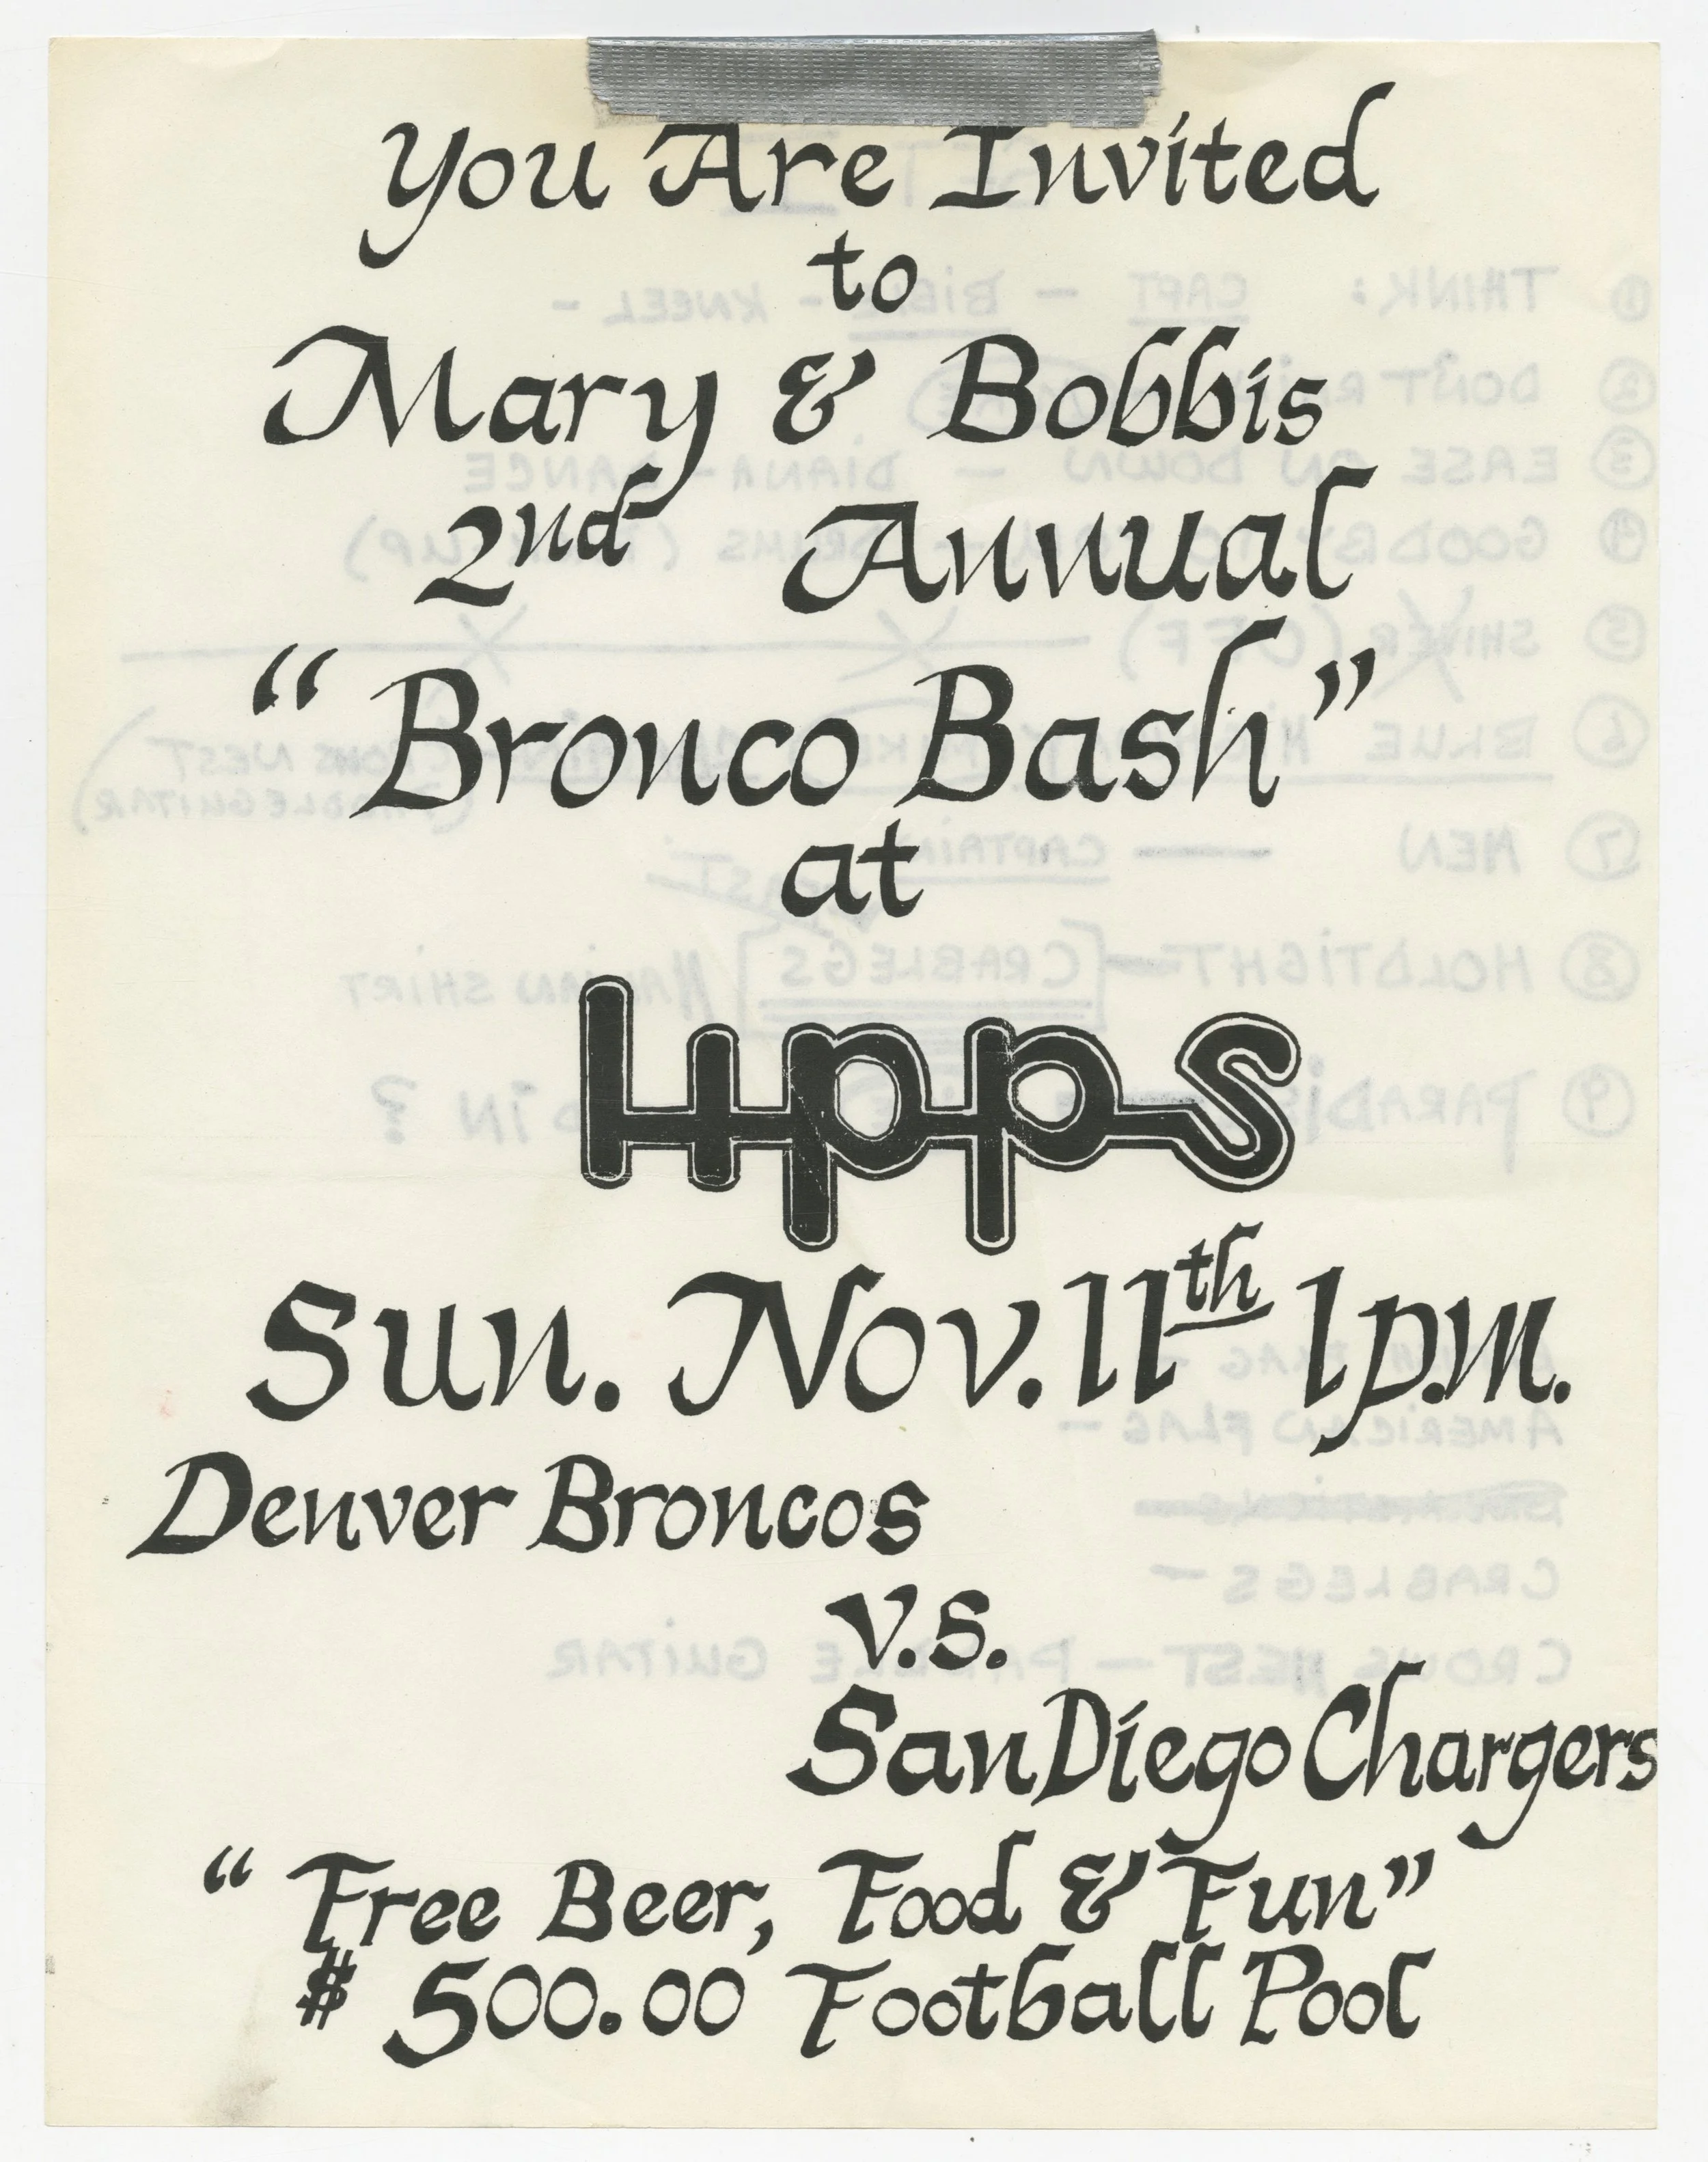 You Are Invited
to
Mary & Bobbis
2nd Annual
“Bronco Bash”
at
lipps
Sun. Nov. 11th 1p.m.
Denver Broncos
v.s.
San Diego Chargers
“Free Beer, Food & Fun”
$ 500.00 Football Pool